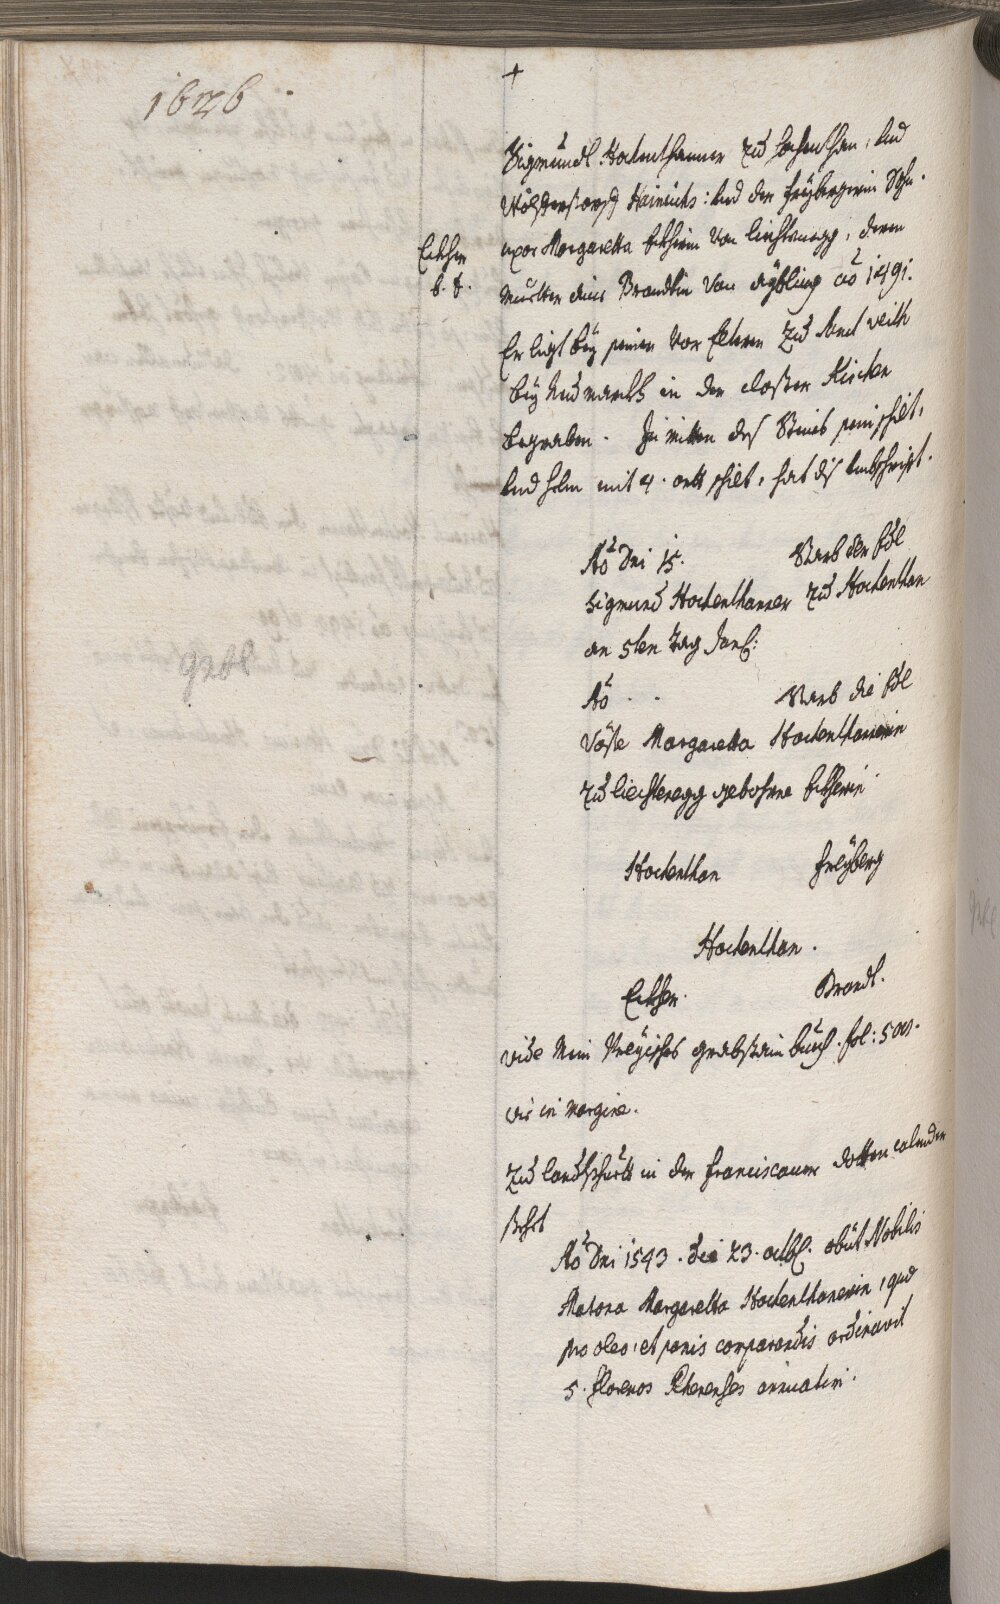 1626
+
Sigmundt Hackenthanner zu hackenthan, und
Wolferstorff Hainrichs: und der freybergerin Sohn.
Eckher
uxor Margaretta Eckherin Von liechtenegg, deren
b. t.
mutter eine Brandtin Von aybling ao 1491.
Er ligt bey seinen Vor Eltern zu Sanct veith
bey Neumarckh in der closter Kirchen
begraben. In mitten des Steins sein schilt,
und helm mit 4. orth schilt, hat dis umbschrifft.
Ao Dni 15. Starb der Edl
Sigmund Hackenthanner zu Hackenthan
an 5ten tag
Ao . . Starb die Edl
Vöste Margaretta Hackenthannerin
zu liechtenegg geborhne Eckherin
grbl
Hackenthan freyberg
Hackenthan.
Eckher. Brandt.
vide Mein grabstain buech. fol: 500.
vir in margine.
zu landtshuett in der franciscaner dotten calender
stehet
Ao Dni 1543. die 23. octbr. obüt Nobilis
Matrona Margaretta Hackenthanerin, quae
pro oleo, et panis comparandis ordinavit
5. florenos Rhenenses annuatim.